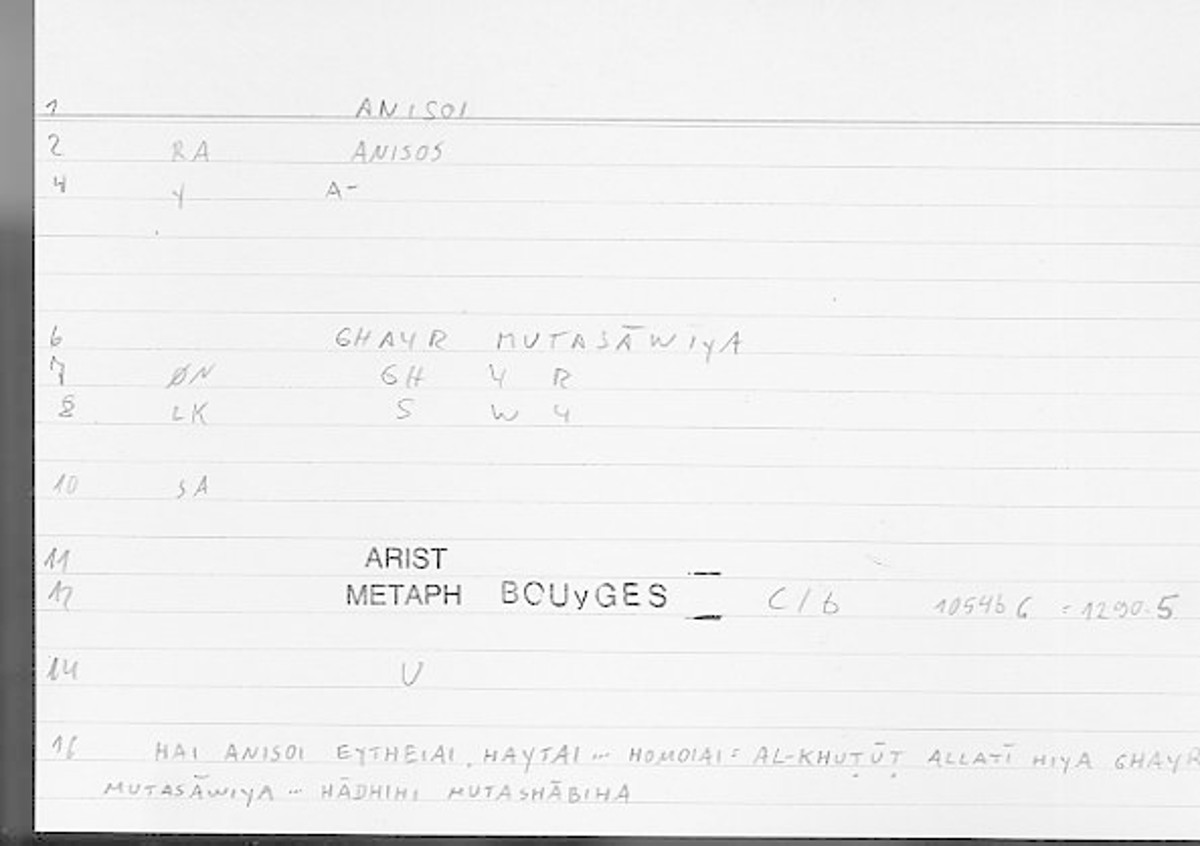 1 ANISOI
2 RA ANISOS
4 y A-
6 GHAYR MUTASĀWIYA
7 ØN GH Y R
8 LK S W Y
10 SA
11 ARIST
12 METAPH BOUyGES C/b 1054b6 = 1290.5
14 U
16 HAI ANISOI EYTHEIAI, HAYTAI ... HOMOIAI = AL-KHUṬŪṬ ALLATĪ HIYA GHAYR
MUTASĀWIYA ... HĀDHIHI MUTASHĀBIHA